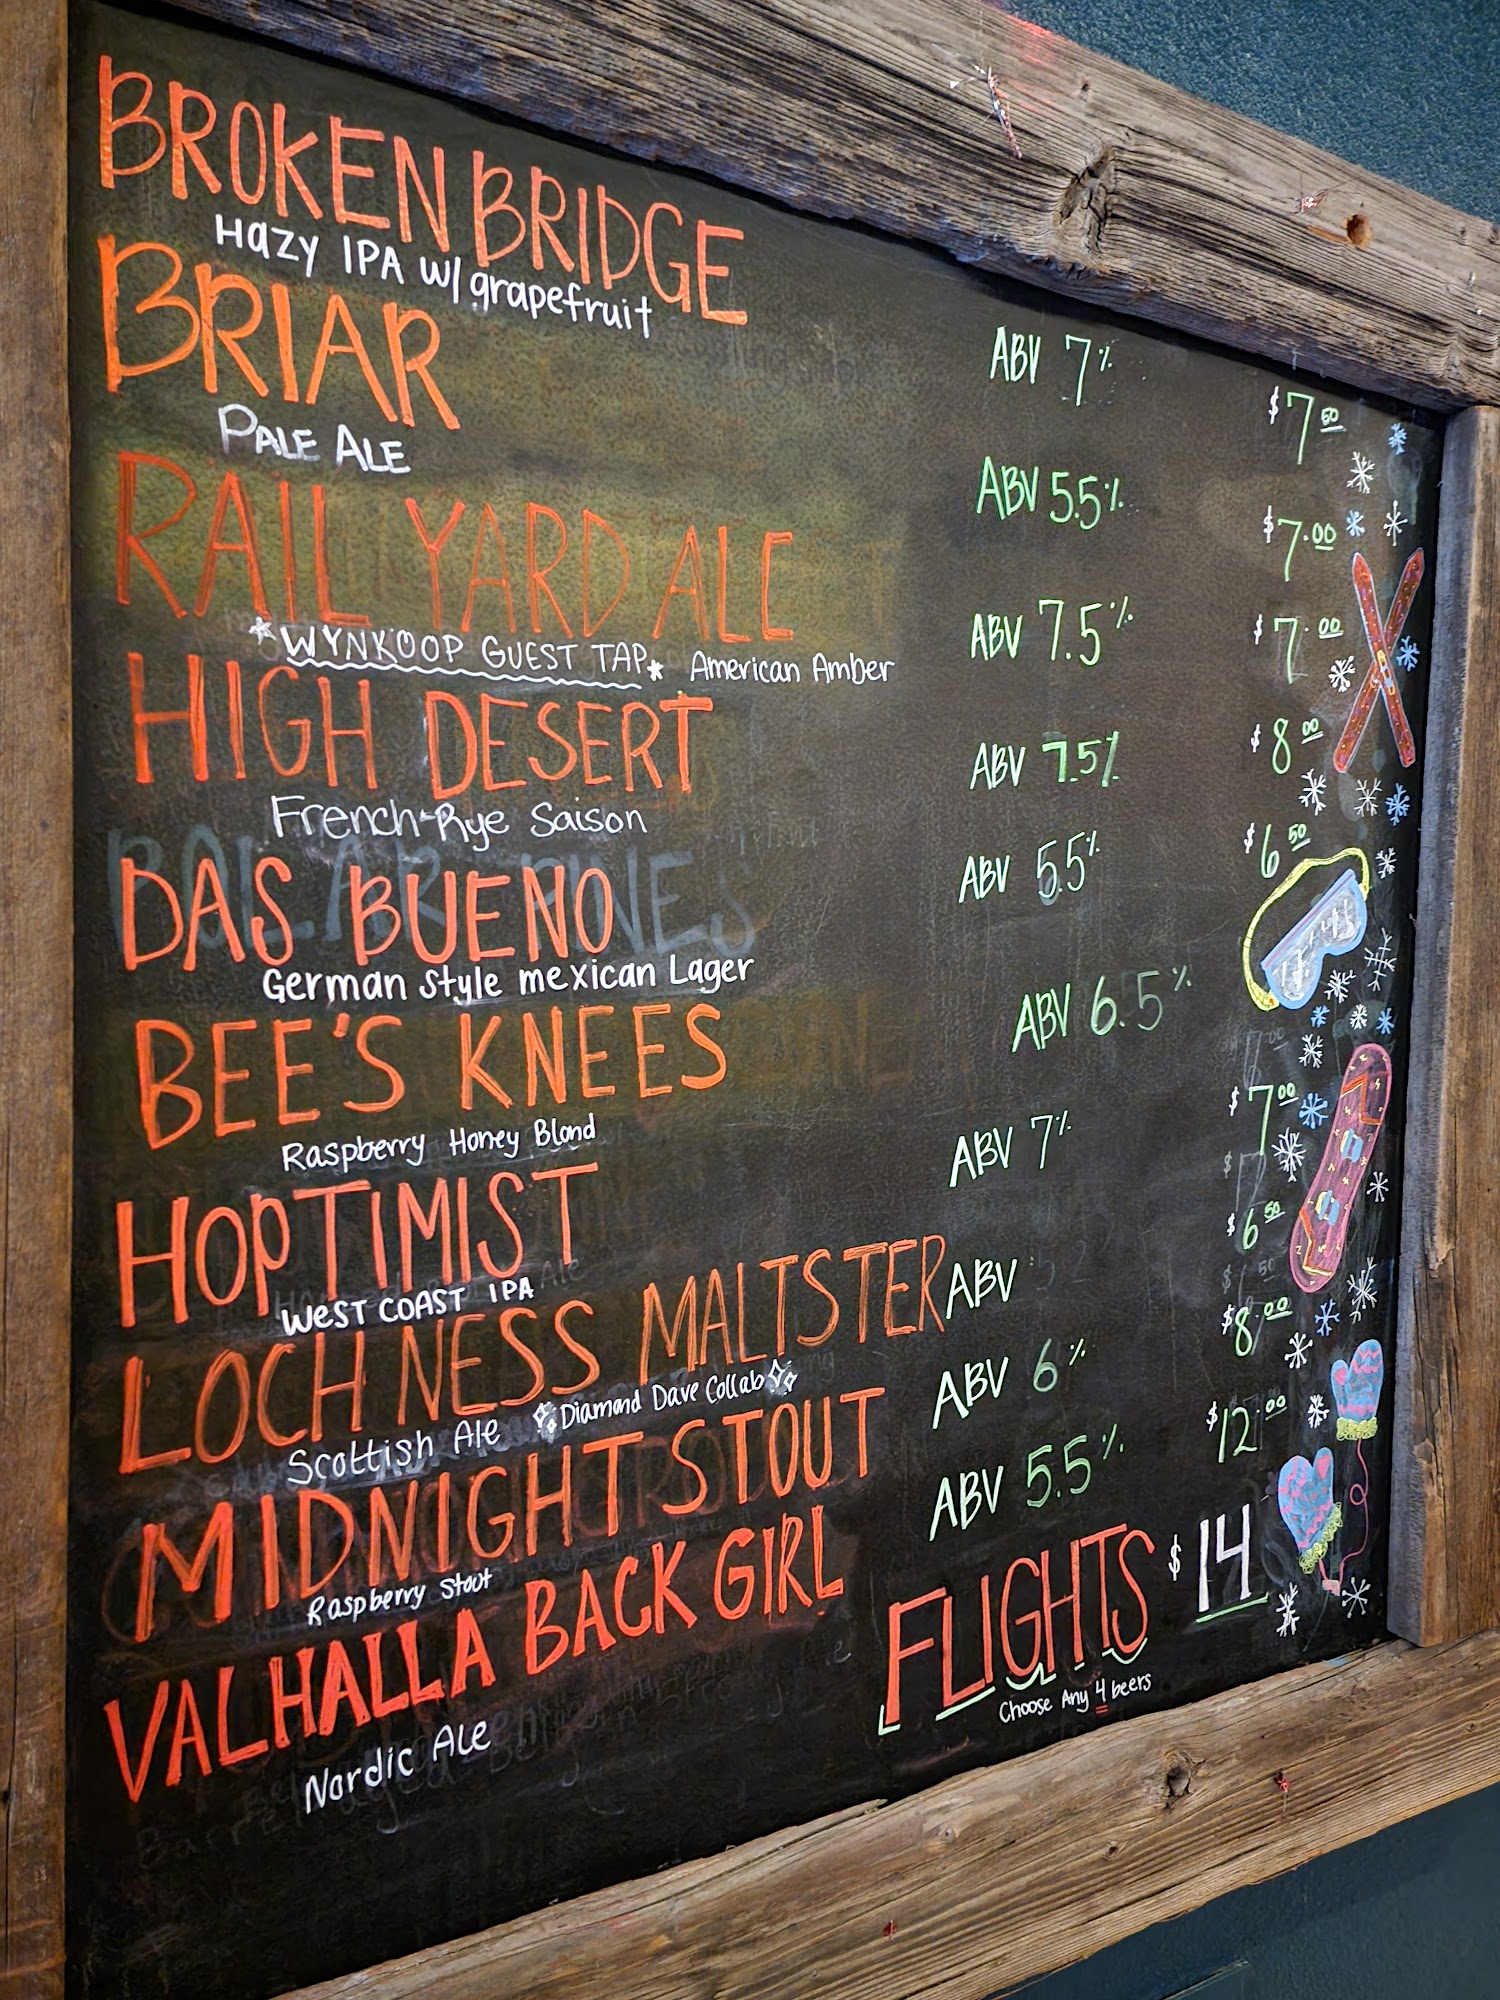 BROKEN BRIDGE
Hazy IPA w/ grapefruit
ABV 7%
$7 50
BRIAR
PALE ALE
ABV 5.5%
$7.00
RAIL YARD ALE
*WYNKOOP GUEST TAP* American Amber
ABV 7.5%
$7.00
HIGH DESERT
French-Rye Saison
ABV 7.5%
$8 00
DAS BUENO
German style mexican Lager
ABV 5.5%
$6 50
BEE'S KNEES
Raspberry Honey Blond
ABV 6.5%
$7 00
HOPTIMIST
WEST COAST IPA
ABV 7%
$6 50
LOCH NESS MALTSTER
Scottish Ale Diamond Dave Collab
ABV
$8.00
MIDNIGHT STOUT
Raspberry Stout
ABV 6%
$12.00
VALHALLA BACK GIRL
Nordic Ale
ABV 5.5%
FLIGHTS $14
Choose Any 4 beers